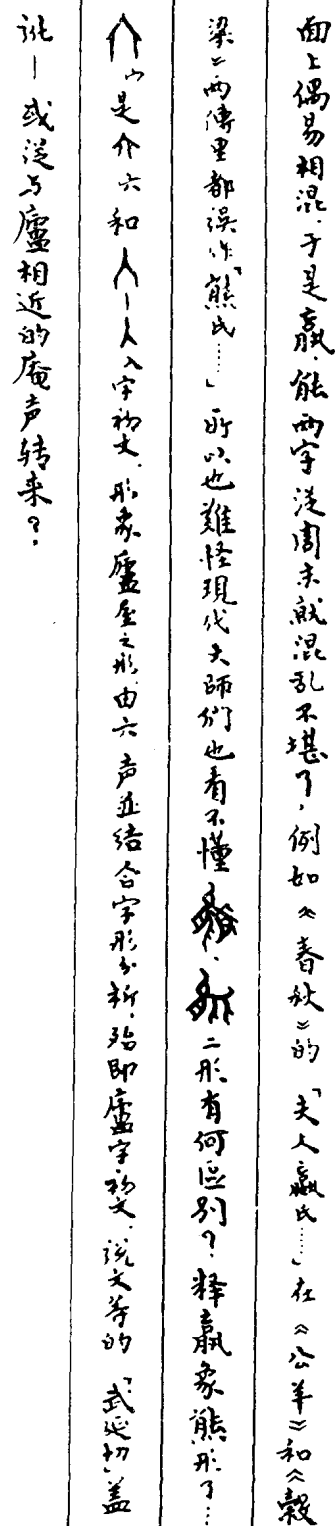 面上偶易相混，于是嬴、能两字从周末就混乱不堪了，例如《春秋》的「夫人嬴氏……」在《公羊》和《穀
梁》两傳里都误作「熊氏……」所以也難怪現代大師們也看不懂、二形有何區别？釋嬴象熊形了…
“是介六和人—入字初文，形象廬屋之形，由六声並结合字形分析，殆即廬字初文，说文等的「武延切」盖
讹—或从与廬相近的庵声转来？